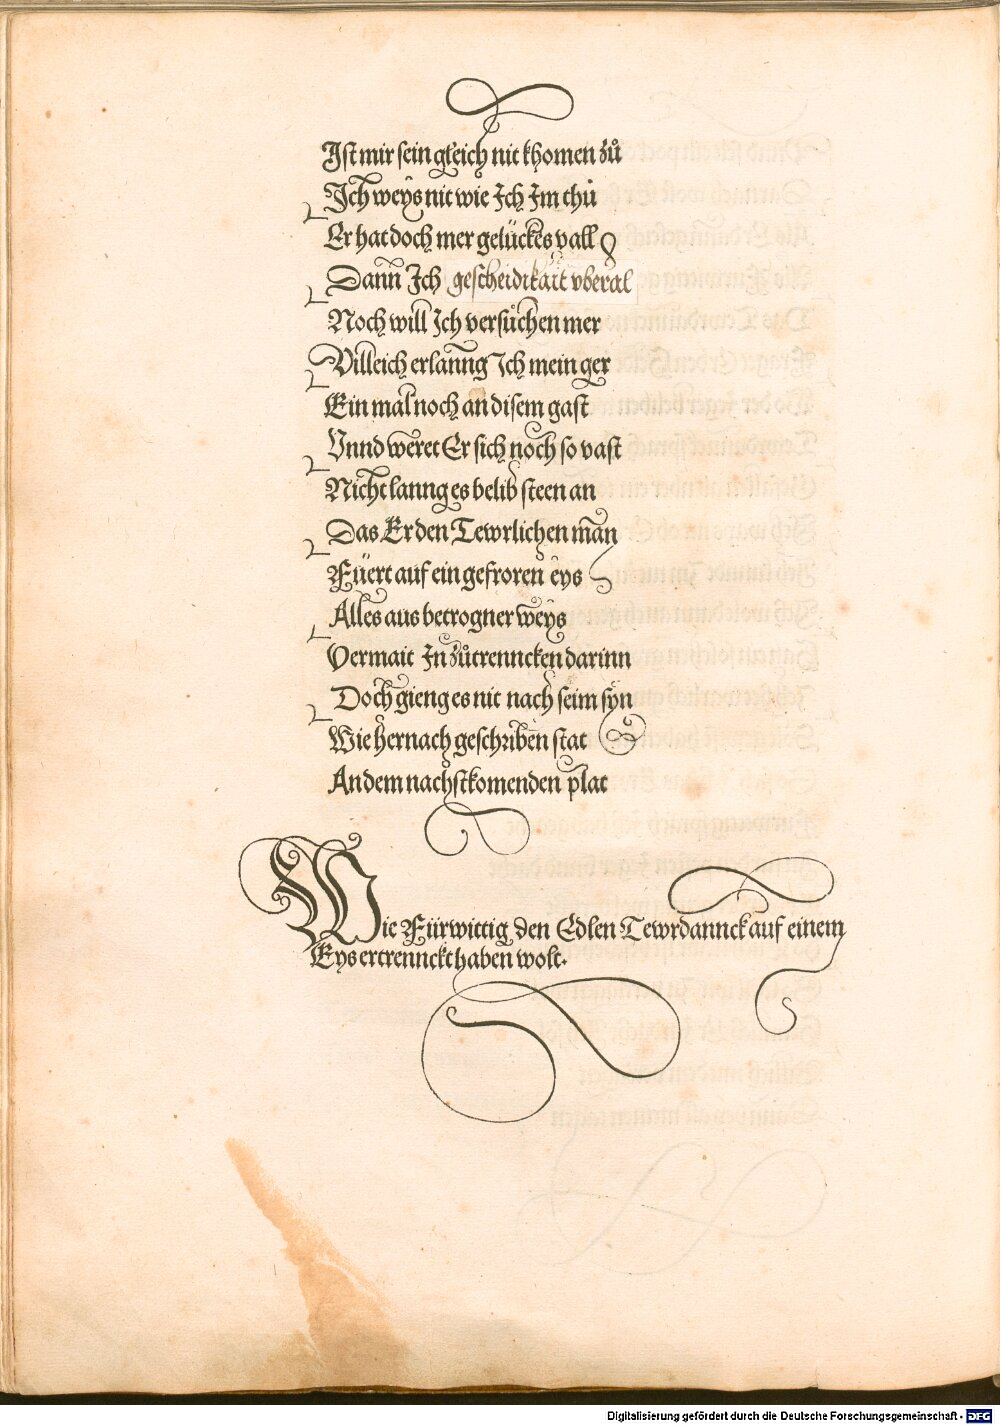 Ist mir sein gleich nit khomen zů
Ich weys nit wie Ich Im thů
Er hat doch mer gelückes vall
Dann Ich gescheidikait vberal
Noch will Ich versůchen mer
Villeich erlanng Ich mein ger
Ein mal noch an disem gast
Vnnd weret Er sich noch so vast
Nicht lanng es belib steen an
Das Er den Tewrlichen man
Füert auf ein gefroren eys
Alles aus betrogner weys
Vermait In zůtrenncken darinn
Doch gieng es nit nach seim syn
Wie hernach geschriben stat
An dem nachstkomenden plat
Wie Fürwittig den Edlen Tewrdannck auf einem
Eys ertrennckt haben wolt.
Digitalisierung gefördert durch die Deutsche Forschungsgemeinschaft - DFG